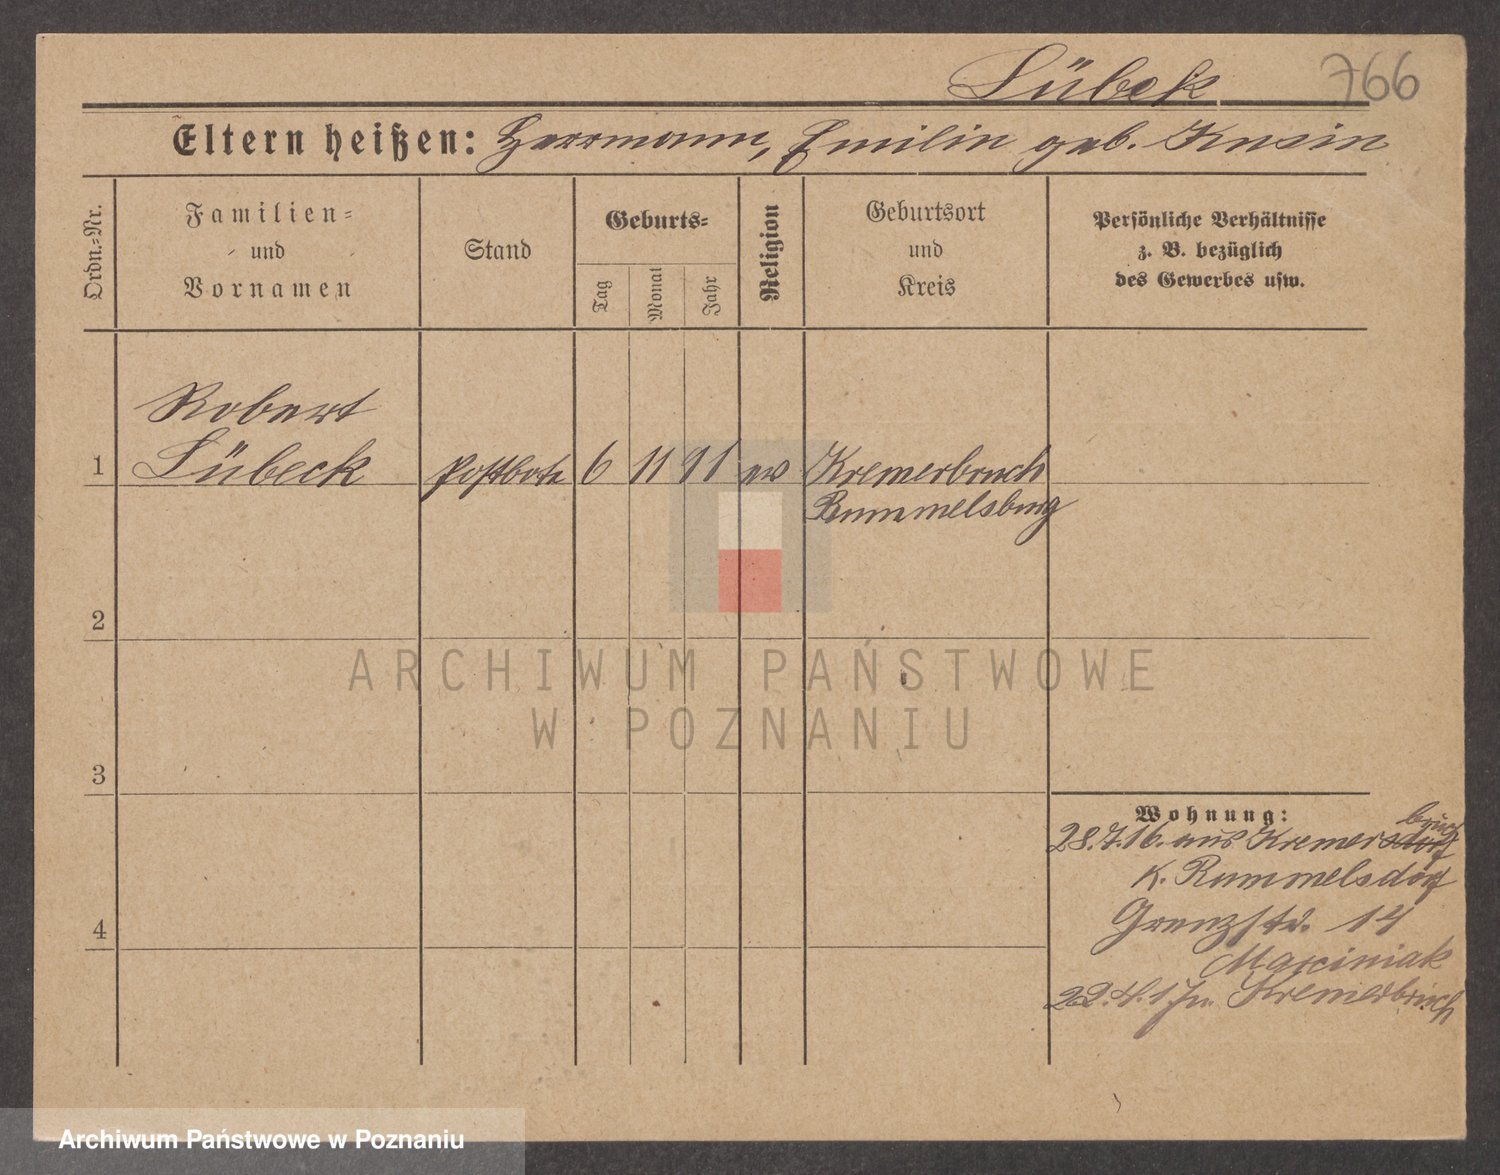 Lübek 766
Eltern heißen: Herrmann, Emilie geb. Krain
Ordn.=Nr.
Familien=
und
Vornamen
Stand
Geburts=
Tag
Monat
Jahr
Religion
Geburtsort
und
Kreis
Persönliche Verhältnisse
z. B. bezüglich
des Gewerbes usw.
Robert
1 Lübeck Postbote 6 11 91 ev Kremerbruch
Rummelsburg
2
3
4
Wohnung:
bruch
28.7.16. aus Kremersdorf
K. Rummelsdorf
Grenzstr. 14
Marciniak
22.4.17 n. Kremerbruch
ARCHIWUM PAŃSTWOWE
W POZNANIU
Archiwum Państwowe w Poznaniu